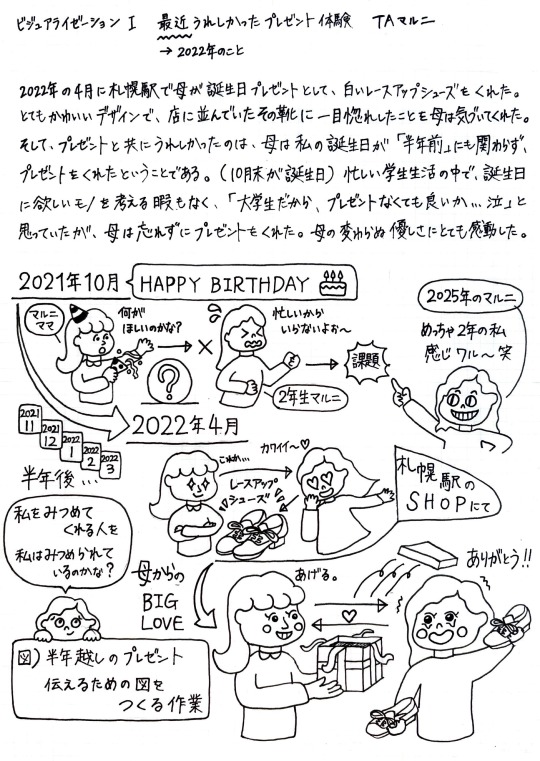 ビジュアライゼーションI 最近うれしかったプレゼント体験 TAマルニ
→2022年のこと
2022年の4月に札幌駅で母が誕生日プレゼントとして、白いレースアップシューズをくれた。
とてもかわいいデザインで、店に並んでいたその靴に一目惚れしたことを母は気づいてくれた。
そして、プレゼントと共にうれしかったのは、母は私の誕生日が「半年前」にも関わらず、
プレゼントをくれたということである。(10月末が誕生日)忙しい学生生活の中で、誕生日
に欲しいモノを考える暇もなく、「大学生だから、プレゼントなくても良いか…泣」と
思っていたが、母は忘れずにプレゼントをくれた。母の変わらぬ優しさにとても感動した。
2021年10月 HAPPY BIRTHDAY
マルニ
ママ
何が
ほしいのかな?
→×
忙しいから
いらないよぉ〜
2年生マルニ
?
課題
2025年のマルニ
めっちゃ2年の私
感じワル〜笑
2022年4月
2021
11
2021
12
2022
1
2022
2
2022
3
半年後…
これか…
カワイイ〜♡
レースアップ
シューズ
札幌駅の
SHOPにて
私をみつめて
くれる人を
私はみつめられて
いるのかな?
母からの
BIG
LOVE
あげる。
ありがとう!!
図)半年越しのプレゼント
伝えるための図を
つくる作業